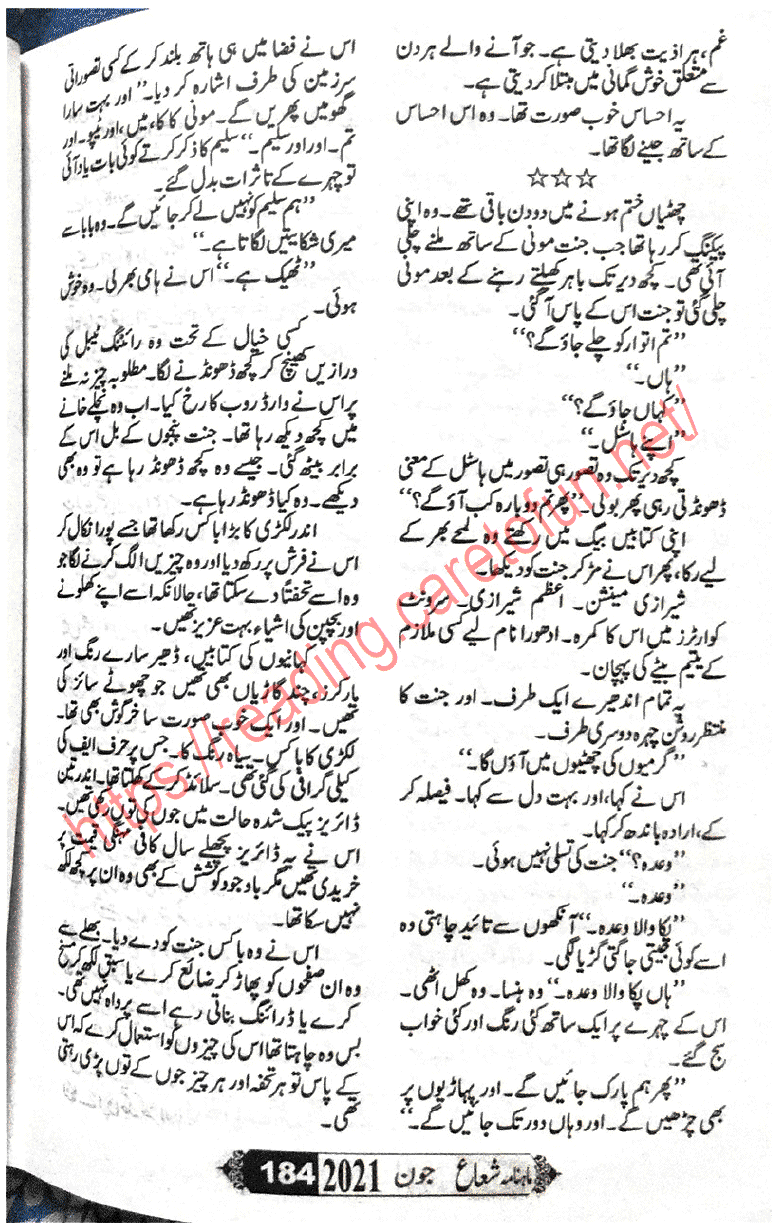 غم، ہر اذیت بھلا دیتی ہے۔ جو آنے والے ہر دن
سے متعلق خوش گمانی میں مبتلا کر دیتی ہے۔
یہ احساس خوب صورت تھا۔ وہ اس احساس
کے ساتھ جینے لگا تھا۔
☆☆☆
چھٹیاں ختم ہونے میں دو دن باقی تھے۔ وہ اپنی
پیکنگ کر رہا تھا جب جنت مونی کے ساتھ ملنے چلی
آئی تھی۔ کچھ دیر تک باہر کھیلتے رہنے کے بعد مونی
چلی گئی تو جنت اس کے پاس آ گئی۔
”تم اتوار کو چلے جاؤ گے؟“
”ہاں۔“
”کہاں جاؤ گے؟“
”اپنے ہاسٹل۔“
کچھ دیر تک وہ تصور ہی تصور میں ہاسٹل کے معنی
ڈھونڈتی رہی پھر بولی۔ ”پھر تم دوبارہ کب آؤ گے؟“
اپنی کتابیں بیگ میں رکھتے وہ لمحے بھر کے
لیے رکا، پھر اس نے مڑ کر جنت کو دیکھا۔
شیرازی مینشن۔ اعظم شیرازی۔ سرونٹ
کوارٹرز میں اس کا کمرہ۔ ادھورا نام لیے کسی ملازم
کے یتیم بیٹے کی پہچان۔
یہ تمام اندھیرے ایک طرف۔ اور جنت کا
منتظر روشن چہرہ دوسری طرف۔
”گرمیوں کی چھٹیوں میں آؤں گا۔“
اس نے کہا، اور بہت دل سے کہا۔ فیصلہ کر
کے، ارادہ باندھ کر کہا۔
”وعدہ؟“ جنت کی تسلی نہیں ہوئی۔
”وعدہ۔“
”پکا والا وعدہ۔“ آنکھوں سے تائید چاہتی وہ
اسے کوئی جیتی جاگتی گڑیا لگی۔
”ہاں پکا والا وعدہ۔“ وہ ہنسا۔ وہ کھل اٹھی۔
اس کے چہرے پر ایک ساتھ کئی رنگ اور کئی خواب
سج گئے۔
”پھر ہم پارک جائیں گے۔ اور پہاڑیوں پر
بھی چڑھیں گے۔ اور وہاں دور تک جائیں گے۔“
اس نے فضا میں ہی ہاتھ بلند کر کے کسی تصوراتی
سرزمین کی طرف اشارہ کر دیا۔ ”اور بہت سارا
گھومیں پھریں گے۔ مونی کا کا، میں، اور ٹیپو۔ اور
تم۔ اور اور سلیم۔“ سلیم کا ذکر کرتے کوئی بات یاد آئی
تو چہرے کے تاثرات بدل گئے۔
”ہم سلیم کو نہیں لے کر جائیں گے۔ وہ بابا سے
میری شکایتیں لگاتا ہے۔“
”ٹھیک ہے۔“ اس نے ہامی بھر لی۔ وہ خوش
ہوئی۔
کسی خیال کے تحت وہ رائٹنگ ٹیبل کی
درازیں کھینچ کر کچھ ڈھونڈنے لگا۔ مطلوبہ چیز نہ ملنے
پر اس نے وارڈ روب کا رخ کیا۔ اب وہ نچلے خانے
میں کچھ دیکھ رہا تھا۔ جنت پنجوں کے بل اس کے
برابر بیٹھ گئی۔ جیسے وہ کچھ ڈھونڈ رہا ہے تو وہ بھی
دیکھے۔ وہ کیا ڈھونڈ رہا ہے۔
اندر لکڑی کا بڑا باکس رکھا تھا جسے پورا نکال کر
اس نے فرش پر رکھ دیا اور وہ چیزیں الگ کرنے لگا جو
وہ اسے تحفتاً دے سکتا تھا، حالانکہ اسے اپنے کھلونے
اور بچپن کی اشیاء بہت عزیز تھیں۔
کہانیوں کی کتابیں، ڈھیر سارے رنگ اور
مارکرز، چند گاڑیاں بھی تھیں جو چھوٹے سائز کی
تھیں۔ اور ایک خوب صورت سا خرگوش بھی تھا۔
لکڑی کا باکس۔ سیاہ رنگ کا۔ جس پر حرف ایف کی
کیلی گرافی کی گئی تھی۔ سلائڈ کر کے کھلتا تھا۔ اندر تین
ڈائریز پیک شدہ حالت میں جوں کی توں رکھی تھیں۔
اس نے یہ ڈائریز پچھلے سال کافی مہنگی قیمت پر
خریدی تھیں مگر باوجود کوشش کے بھی وہ ان پر کچھ لکھ
نہیں سکا تھا۔
اس نے وہ باکس جنت کو دے دیا۔ بھلے سے
وہ ان صفحوں کو پھاڑ کر ضائع کرے یا سبق لکھ کر مسخ
کرے یا ڈرائنگ بناتی رہے اسے پرواہ نہیں تھی۔
بس وہ چاہتا تھا اس کی چیزوں کو استعمال کرے کہ اس
کے پاس تو ہر تحفہ اور ہر چیز جوں کے توں پڑی رہتی
تھی۔
ماہنامہ شعاع جون 2021 184
https://reading.caretofun.net/